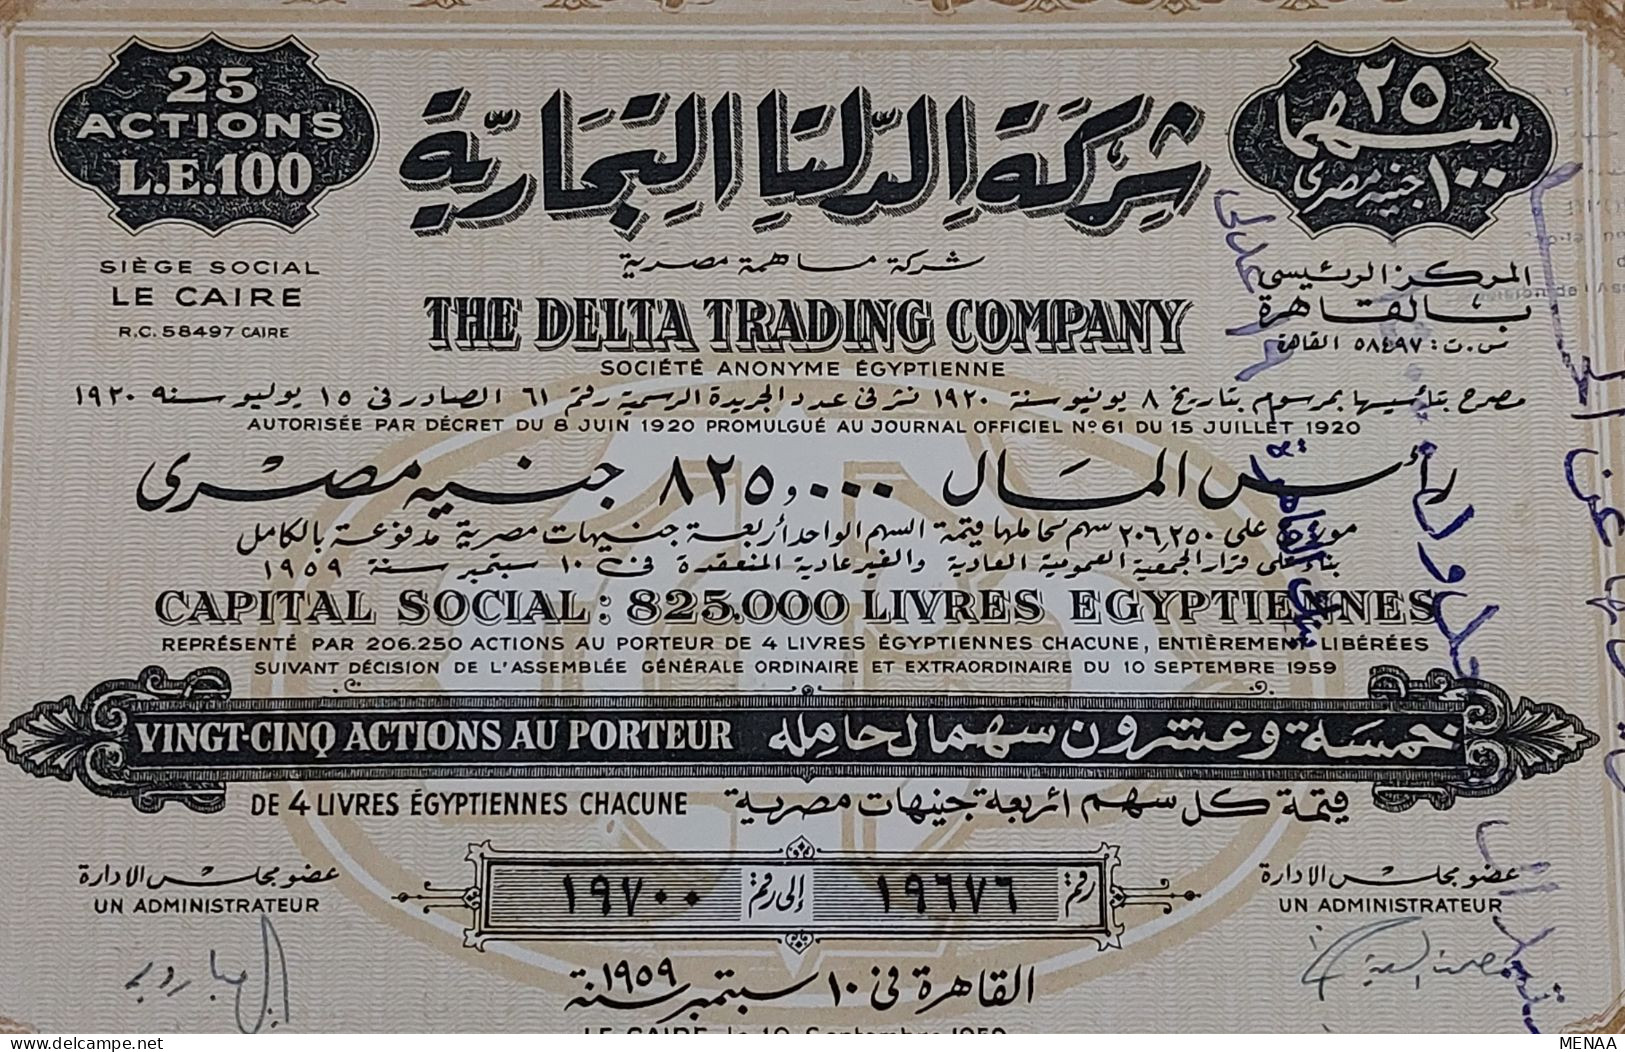 25
ACTIONS
L.E.100
شركة الدلتا التجارية
٢٥
سهما
١٠٠ جنيه مصرى
شركة مساهمة مصرية
SIÈGE SOCIAL
LE CAIRE
R.C. 58497 CAIRE
THE DELTA TRADING COMPANY
SOCIÉTÉ ANONYME ÉGYPTIENNE
المركز الرئيسى
بالقاهرة
س.ت: ٥٨٤٩٧ القاهرة
مصرح بتأسيسها بمرسوم بتاريخ ٨ يونيو سنة ١٩٢٠ نشر فى عدد الجريدة الرسمية رقم ٦١ الصادر فى ١٥ يوليو سنة ١٩٢٠
AUTORISÉE PAR DÉCRET DU 8 JUIN 1920 PROMULGUÉ AU JOURNAL OFFICIEL Nº 61 DU 15 JUILLET 1920
رأس المال ٨٢٥,٠٠٠ جنيه مصرى
موزع على ٢٠٦,٢٥٠ سهم لحاملها قيمة السهم الواحد أربعة جنيهات مصرية مدفوعة بالكامل
بناء على قرار الجمعية العمومية العادية والغير عادية المنعقدة فى ١٠ سبتمبر سنة ١٩٥٩
CAPITAL SOCIAL: 825.000 LIVRES EGYPTIENNES
REPRÉSENTÉ PAR 206.250 ACTIONS AU PORTEUR DE 4 LIVRES ÉGYPTIENNES CHACUNE, ENTIÈREMENT LIBÉRÉES
SUIVANT DÉCISION DE L'ASSEMBLÉE GÉNÉRALE ORDINAIRE ET EXTRAORDINAIRE DU 10 SEPTEMBRE 1959
VINGT-CINQ ACTIONS AU PORTEUR خمسة وعشرون سهما لحامله
DE 4 LIVRES ÉGYPTIENNES CHACUNE قيمة كل سهم أربعة جنيهات مصرية
عضو مجلس الادارة
UN ADMINISTRATEUR
رقم ١٩٦٧٦ إلى رقم ١٩٧٠٠
عضو مجلس الادارة
UN ADMINISTRATEUR
القاهرة فى ١٠ سبتمبر سنة ١٩٥٩
LE CAIRE, le 10 Septembre 1959
delcampe.net
MENAA